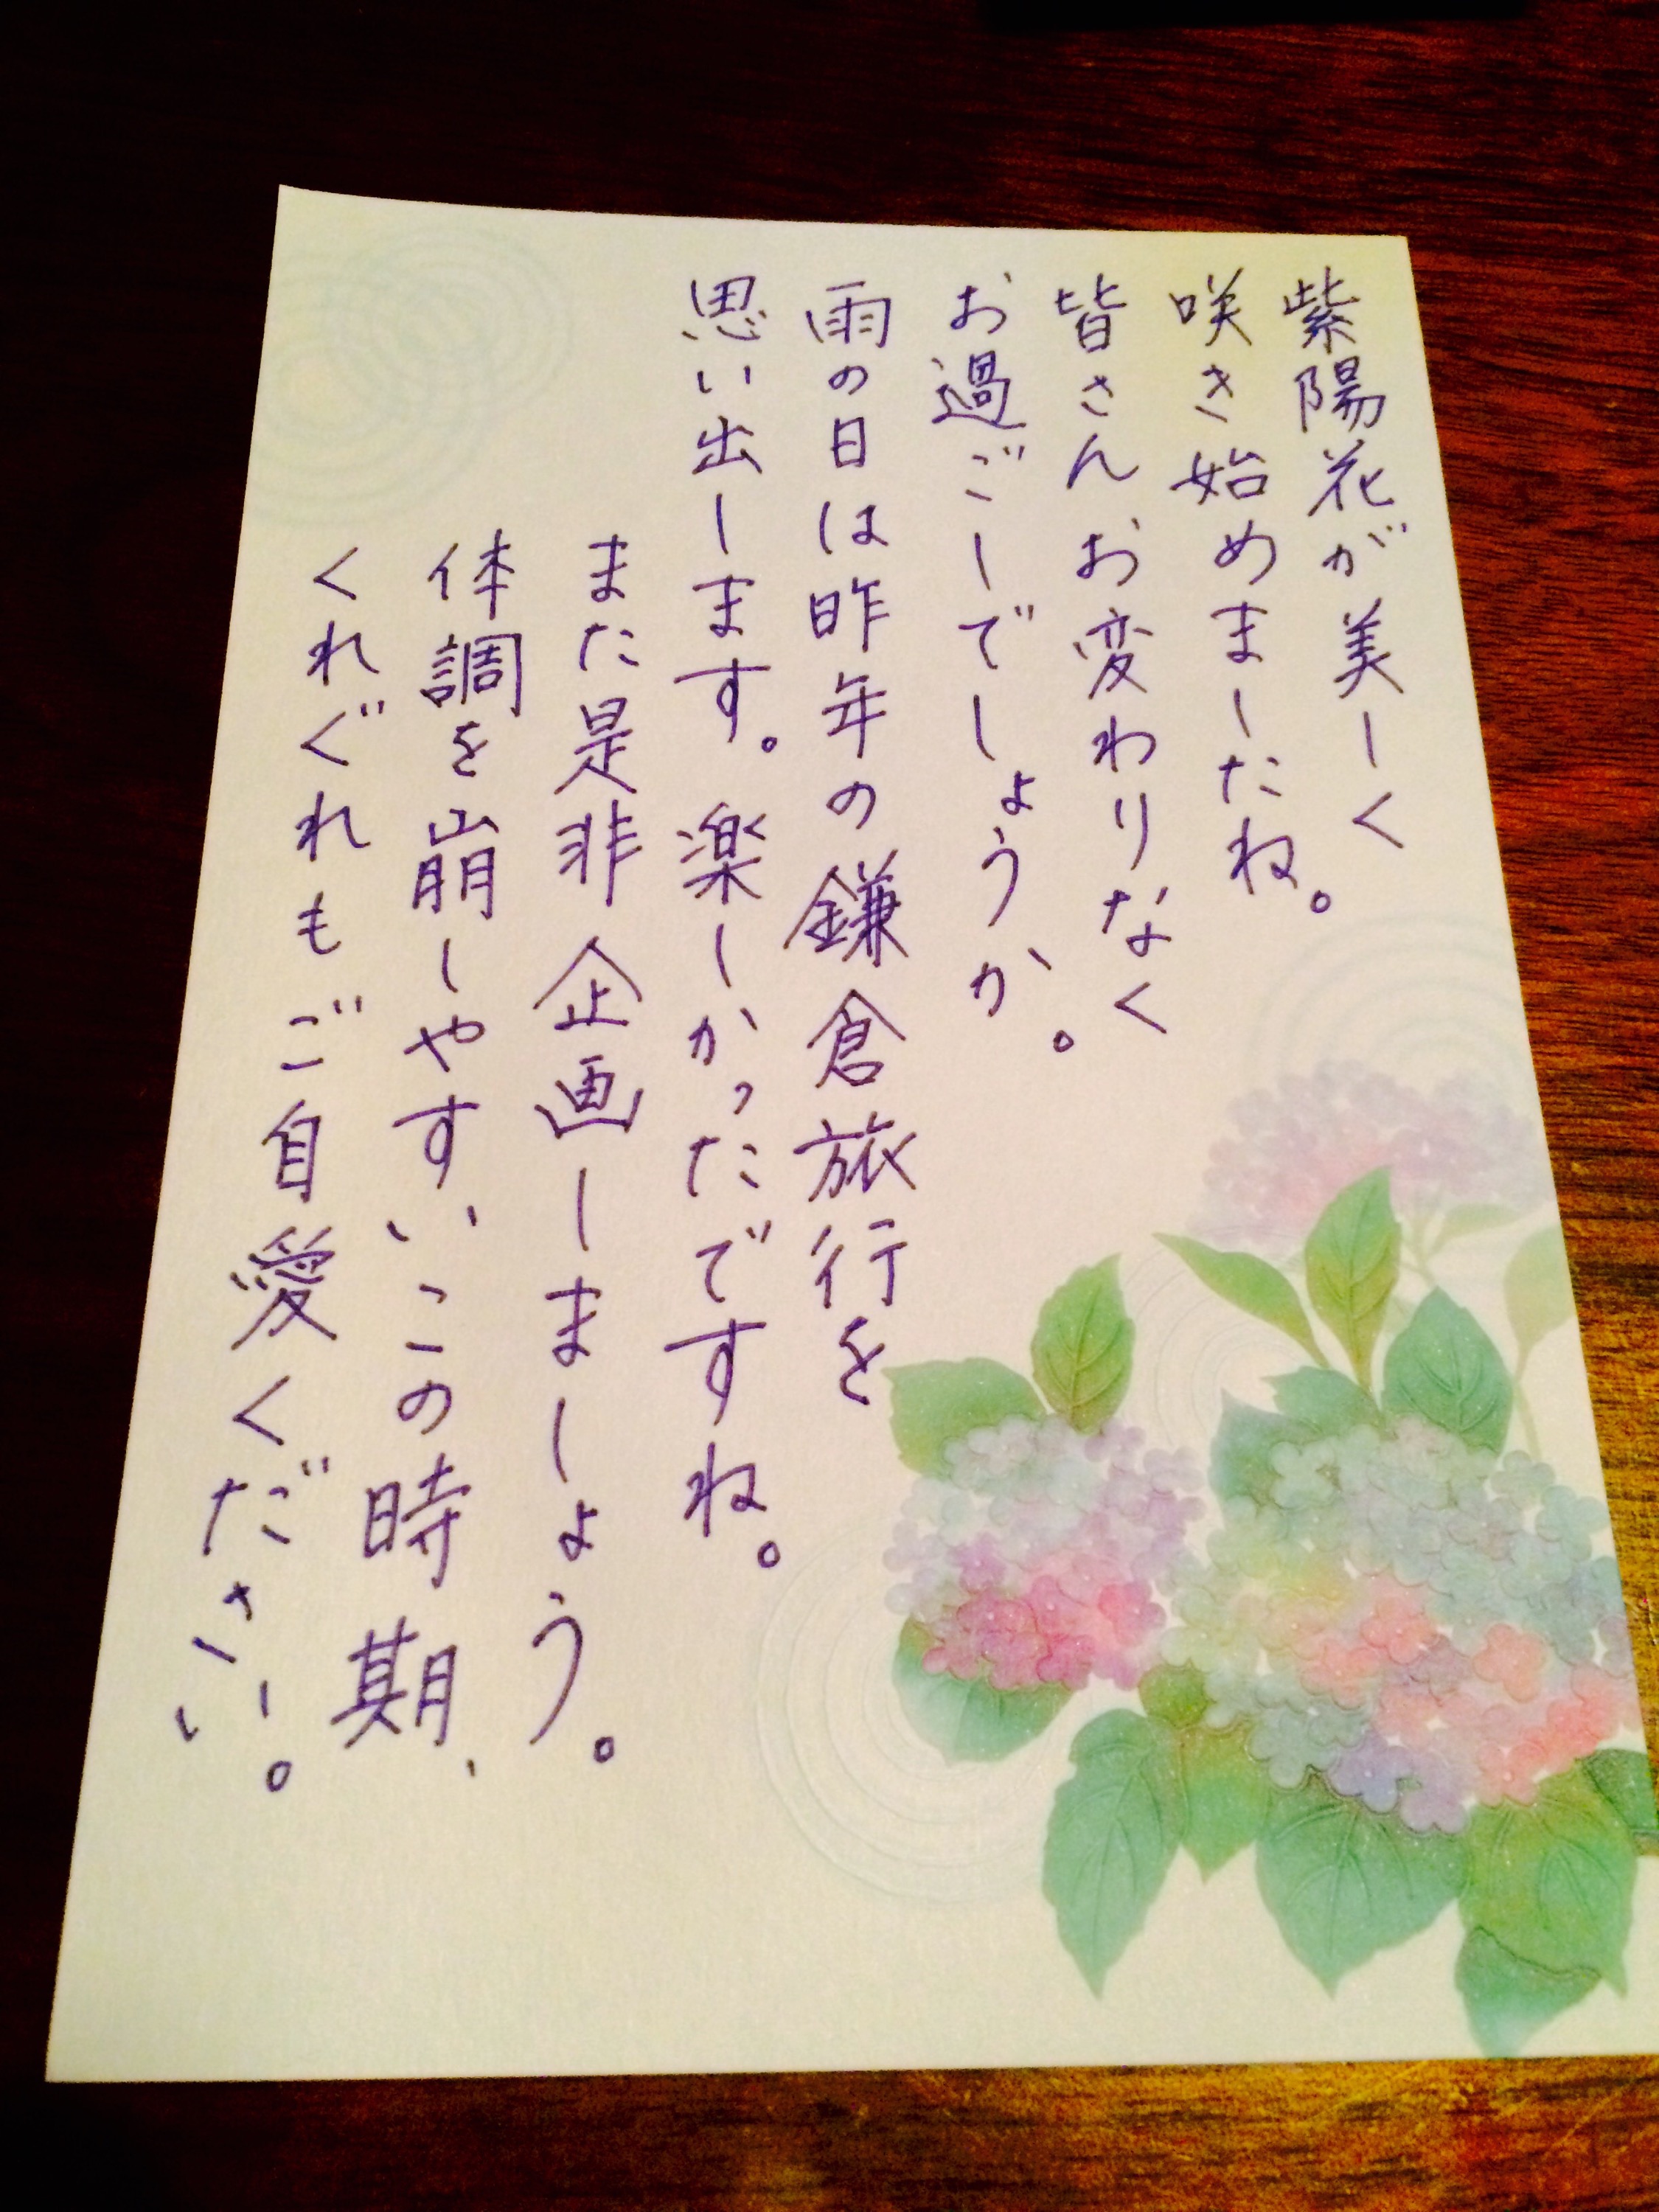 紫陽花が美しく
咲き始めましたね。
皆さんお変わりなく
お過ごしでしょうか。
雨の日は昨年の鎌倉旅行を
思い出します。楽しかったですね。
また是非企画しましょう。
体調を崩しやすいこの時期、
くれぐれもご自愛くださいい。